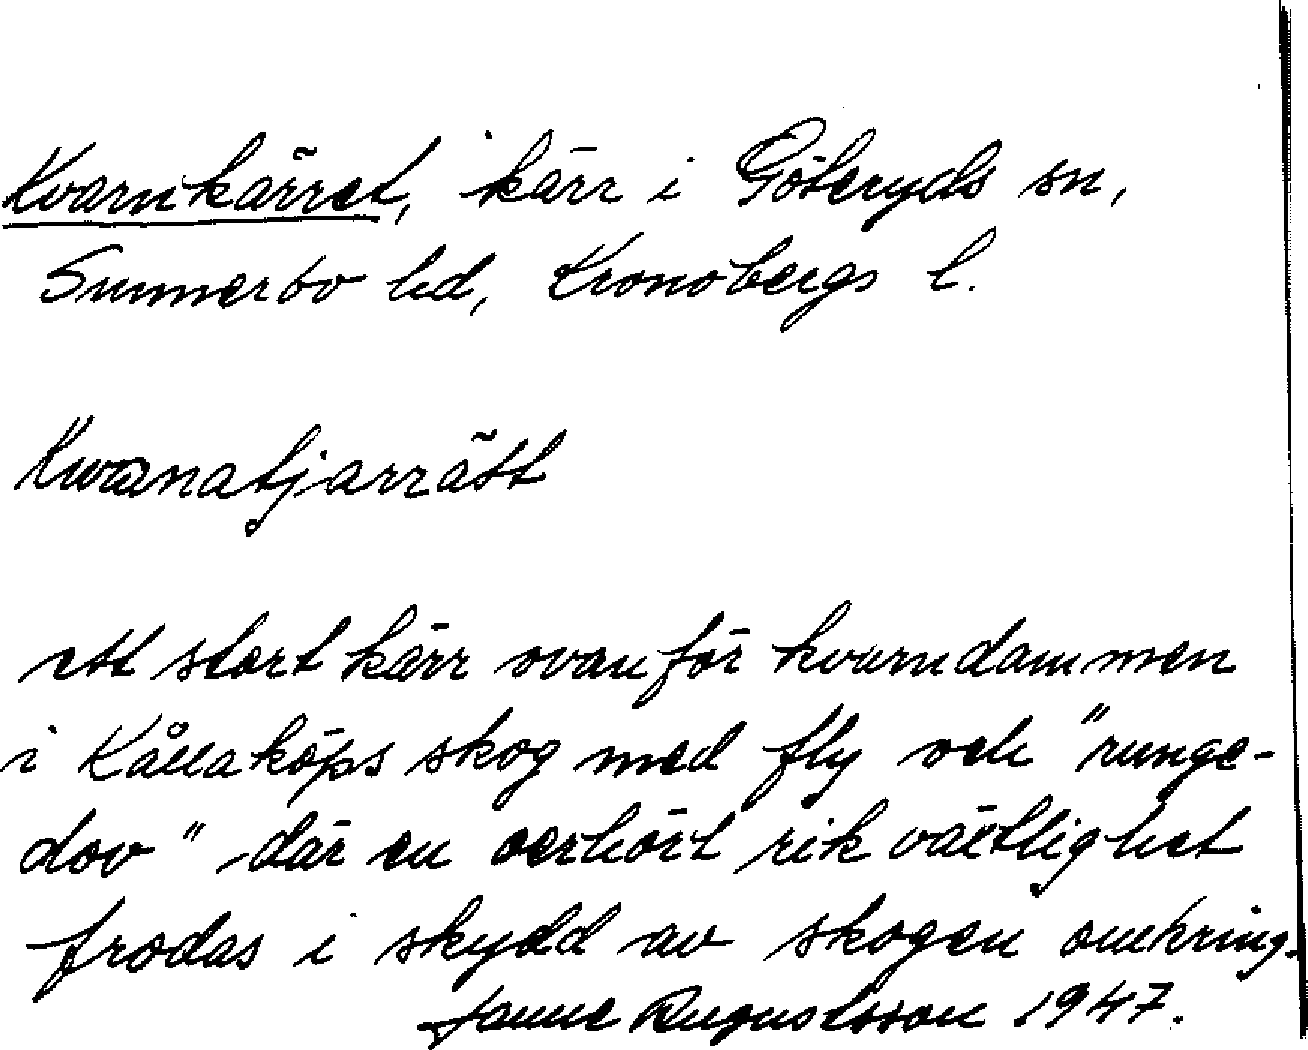 Kvarnkärret, kärr i Göteryds sn,
Sunnerbo hd, Kronobergs l.
Kwanatjarrätt
ett stort kärr ovanför kvarndammen
i Kållaköps skog med fly och "runge-
dov" där en oerhört rik växtlighet
frodas i skydd av skogen omkring.
Janne Augustsson 1947.